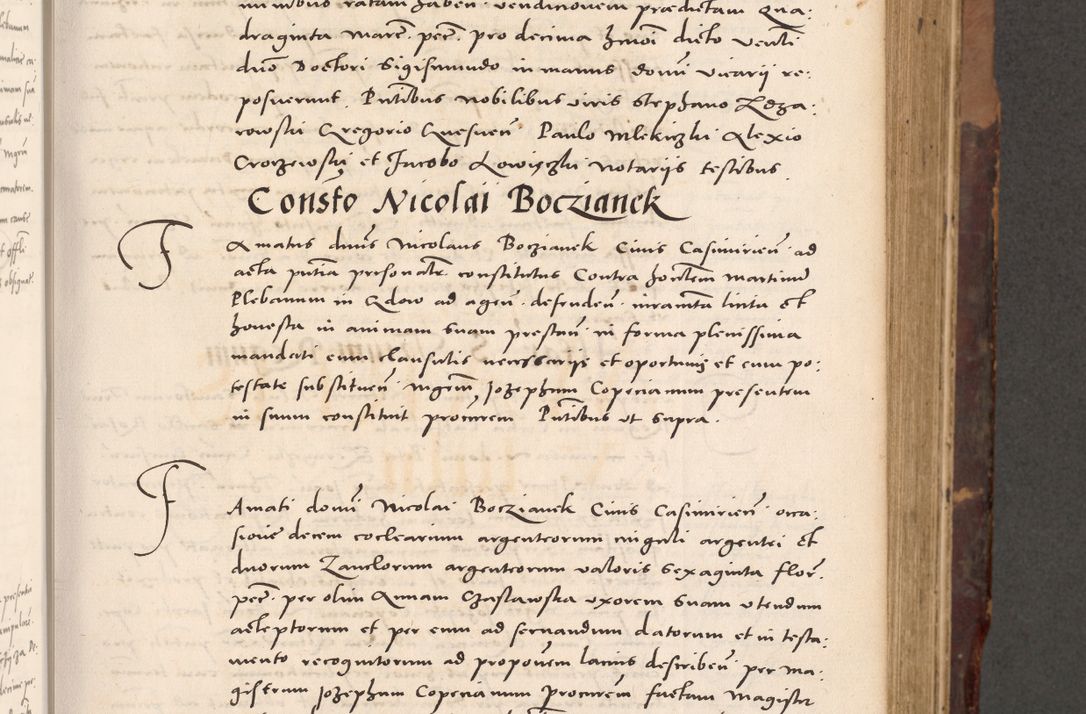 draginta marcˉ. pecˉ. pro decima hmoi dicto venlˡi
duo Doctori Sigismundo in manus domi vicarij re:
posuerunt. Pntibus nobilibus viris Stephano
rowski Gregorio Paulo Alexio
et Jacobo Lowięczki notarijs testibus.
Consto Nicolai Boczianek
Famatus dnus Nicolaus Boczianek Civis Casimirien ad
acta pntia personalr constitutus Contra honlem Martinu
Plebanum in Gdow ad agen. defenden. iuramta licita et
honesta in animam suam prestan in forma plenissima
mandati cum clausulis necessarijs et oportunis et cum po:
testate substituen. mgrum Josephum Copecianum presentem
in suum constituit procurem Pntibus ut supra.
Famati domi Nicolai Boczianek Civis Casimirien occa:
sione decem coclearium argenteorum cinguli argentei et
duorum Zanclorum argenteorum valoris sexaginta flor.
pecˉ. per olim Annam Czaslawska uxorem suam utendum
acceptorum et per eum ad servandum datorum et in testa:
mento recognitorum ad proponem lacius describen per ma:
gistrum Josephum Copecianum procurem factam Magister